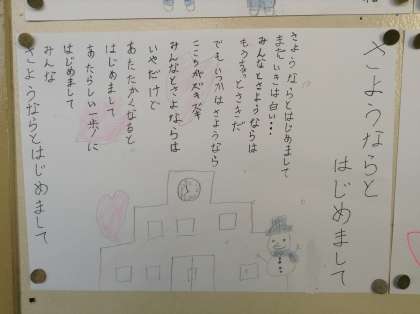 さようならと
はじめまして
さようならとはじめまして
まだいきは白い・・・
みんなとさようならは
もうちょっとさきだ
でもいつかはさようなら
みんなとさよならは
いやだけど
あたたかくなると
はじめまして
あたらしい一歩に
はじめまして
みんな
さようならとはじめまして